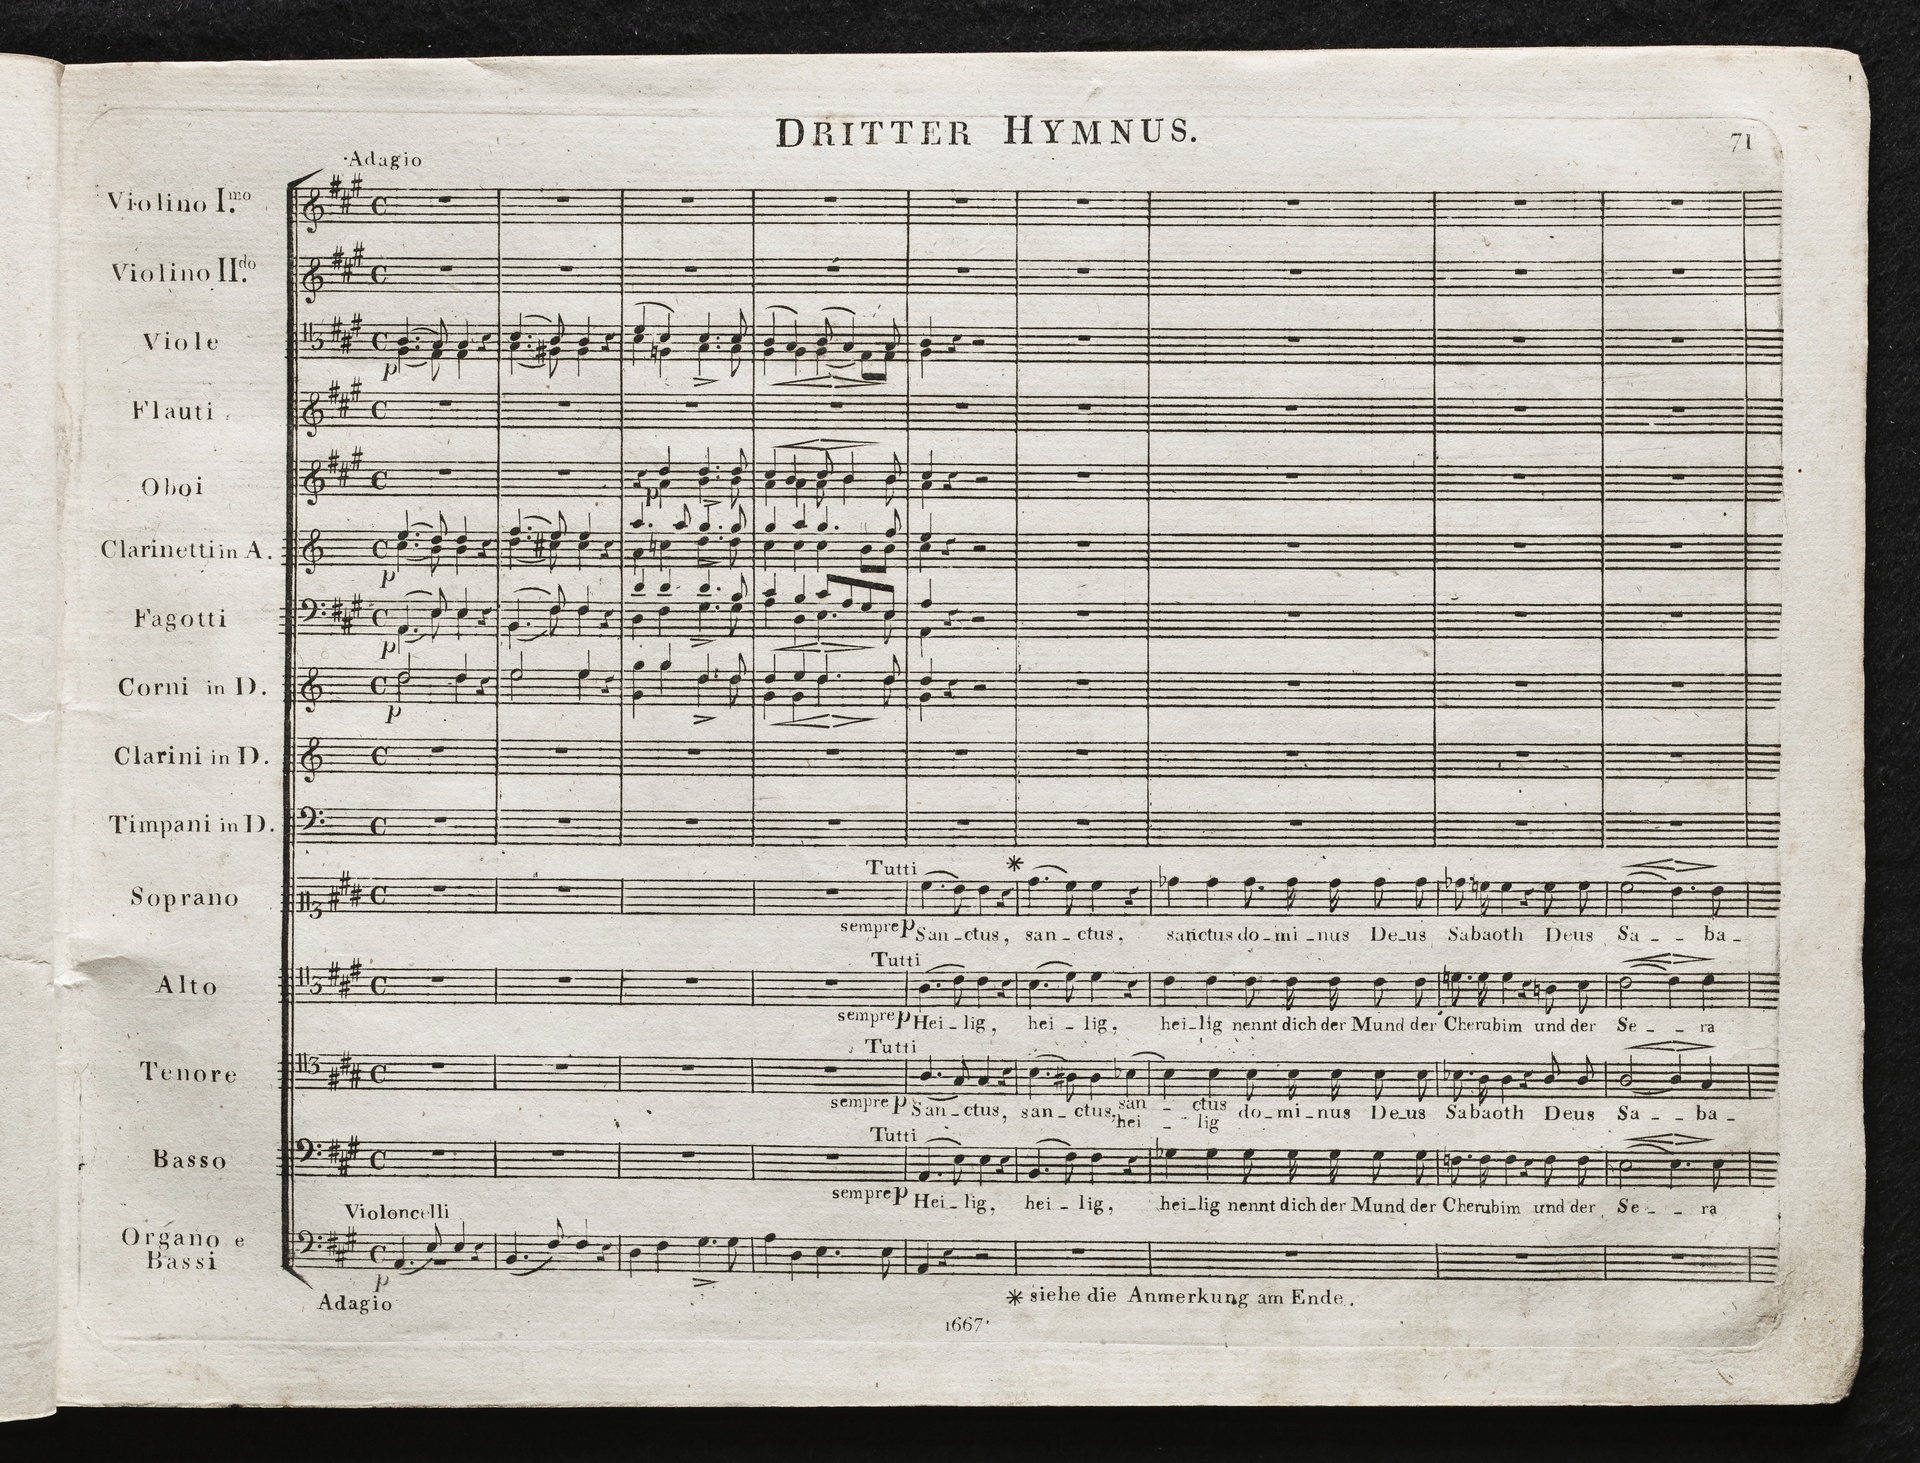 DRITTER HYMNUS.
71
Adagio
Violino I.mo
Violino II.do
Viole
p
Flauti
Oboi
p
Clarinetti in A.
p
Fagotti
p
Corni in D.
p
Clarini in D.
Timpani in D.
Tutti *
Soprano
sempre p San - ctus, san - ctus, sanctus do - mi - nus De - us Sabaoth Deus Sa - - ba -
Tutti
Alto
sempre p Hei - lig, hei - lig, hei - lig nennt dich der Mund der Cherubim und der Se - - ra
Tutti
Tenore
sempre p San - ctus, san - ctus, san - ctus do - mi - nus De - us Sabaoth Deus Sa - - ba -
hei - lig
Tutti
Basso
sempre p Hei - lig, hei - lig, hei - lig nennt dich der Mund der Cherubim und der Se - - ra
Violoncelli
Organo e
Bassi
p
Adagio
* siehe die Anmerkung am Ende.
1667